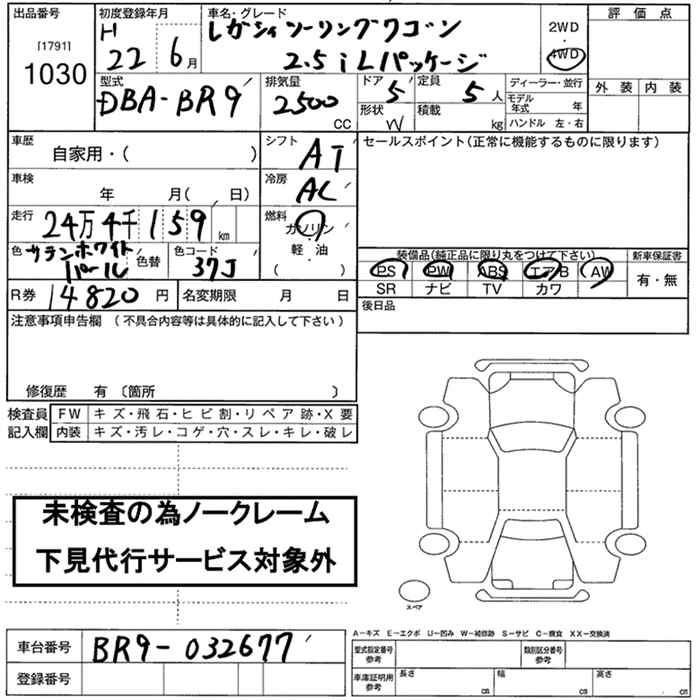 出品番号 初度登録年月 車名・グレード 2WD ・ 4WD 評価点
[1791] 1030 H 22 6月 レガシィツーリングワゴン
2.5iLパッケージ
外装 内装
型式 排気量 ドア 定員 ディーラー・並行
DBA-BR9 2500 CC 5 5人 モデル年式 年
形状 W 積載 kg ハンドル 左・右
車歴 シフト セールスポイント(正常に機能するものに限ります)
自家用・( ) AT
車検 冷房
年 月( 日) AC
走行 燃料
24万4千159km ガソリン
軽・油
( )
色 サテンホワイトパール 色替 色コード 37J
装備品(純正品に限り丸をつけて下さい) 新車保証書
PS PW ABS エアB AW 有・無
SR ナビ TV カワ
R券 14820円 名変期限 月 日 後日品
注意事項申告欄(不具合内容等は具体的に記入して下さい)
修復歴 有 〔箇所 〕
検査員 FW キズ・飛石・ヒビ割・リペア跡・X要
記入欄 内装 キズ・汚レ・コゲ・穴・スレ・キレ・破レ
未検査の為ノークレーム
下見代行サービス対象外
スペア
A-キズ E-エクボ U-凹み W-補修跡 S-サビ C-腐食 XX-交換済
車台番号 BR9-032677 型式指定番号 参考 類別区分番号 参考
登録番号 車庫証明用 参考 長さ cm 幅 cm 高さ cm